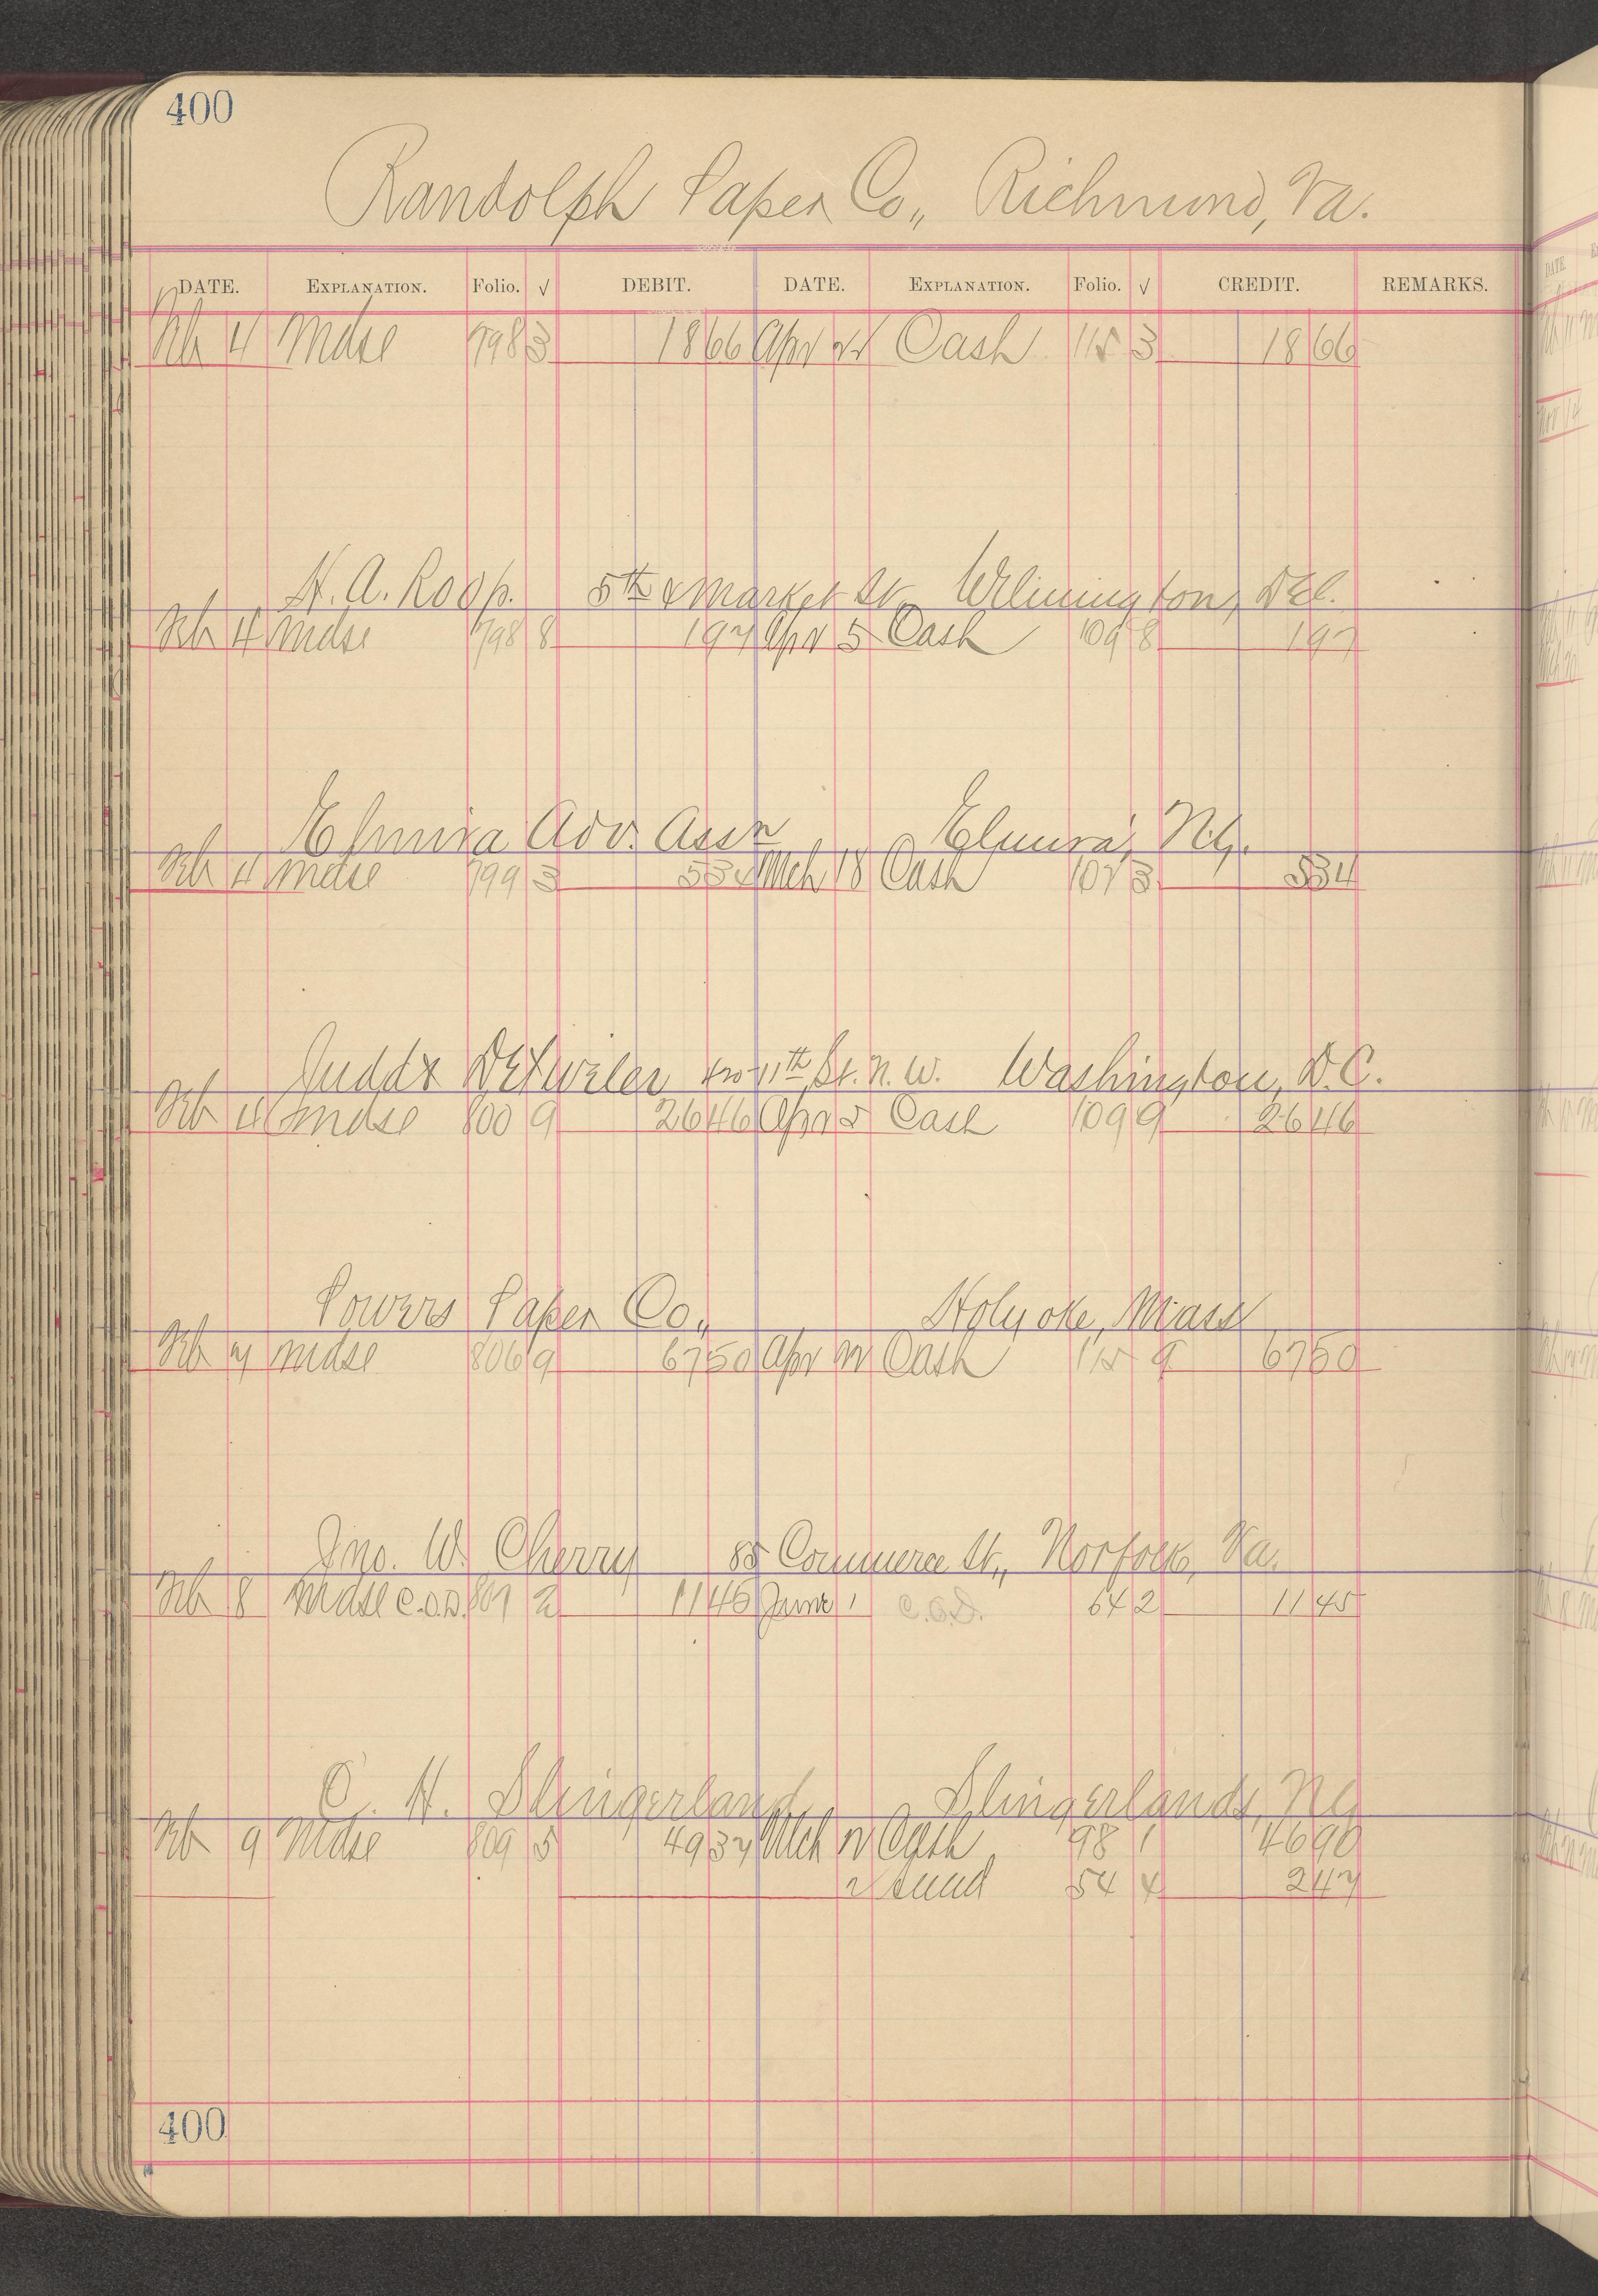 400
Randolph Paper Co., Richmond, Va.
DATE. EXPLANATION. Folio. √ DEBIT. DATE. EXPLANATION. Folio. √ CREDIT. REMARKS.
Feb 4 Mdse 798 3 18 66 Apr Cash 3 18 66
H. A. Roop. 5th & Market St., Wilmington, Del.
Feb 4 Mdse 798 8 1 97 Apr 5 Cash 109 8 1 97
Elmira Adv. Assn Elmira, N.Y.
Feb 4 Mdse 799 3 5 34 Mch 18 Cash 107 3 5 34
Judd & Detweiler 11th St. N. W. Washington, D.C.
Feb 4 Mdse 800 9 26 46 Apr 5 Cash 109 9 26 46
Powers Paper Co., Holyoke, Mass
Feb 7 Mdse 806 9 67 50 Apr Cash 9 67 50
Jno. W. Cherry 85 Commerce St., Norfolk, Va.
Feb 8 Mdse C.O.D. 807 2 11 45 June 1 C.O.D. 64 2 11 45
C. H. Slingerland Slingerlands, N.Y.
Feb 9 Mdse 809 5 49 37 Mch Cash 98 1 46 90
Sund 54 4 2 47
400